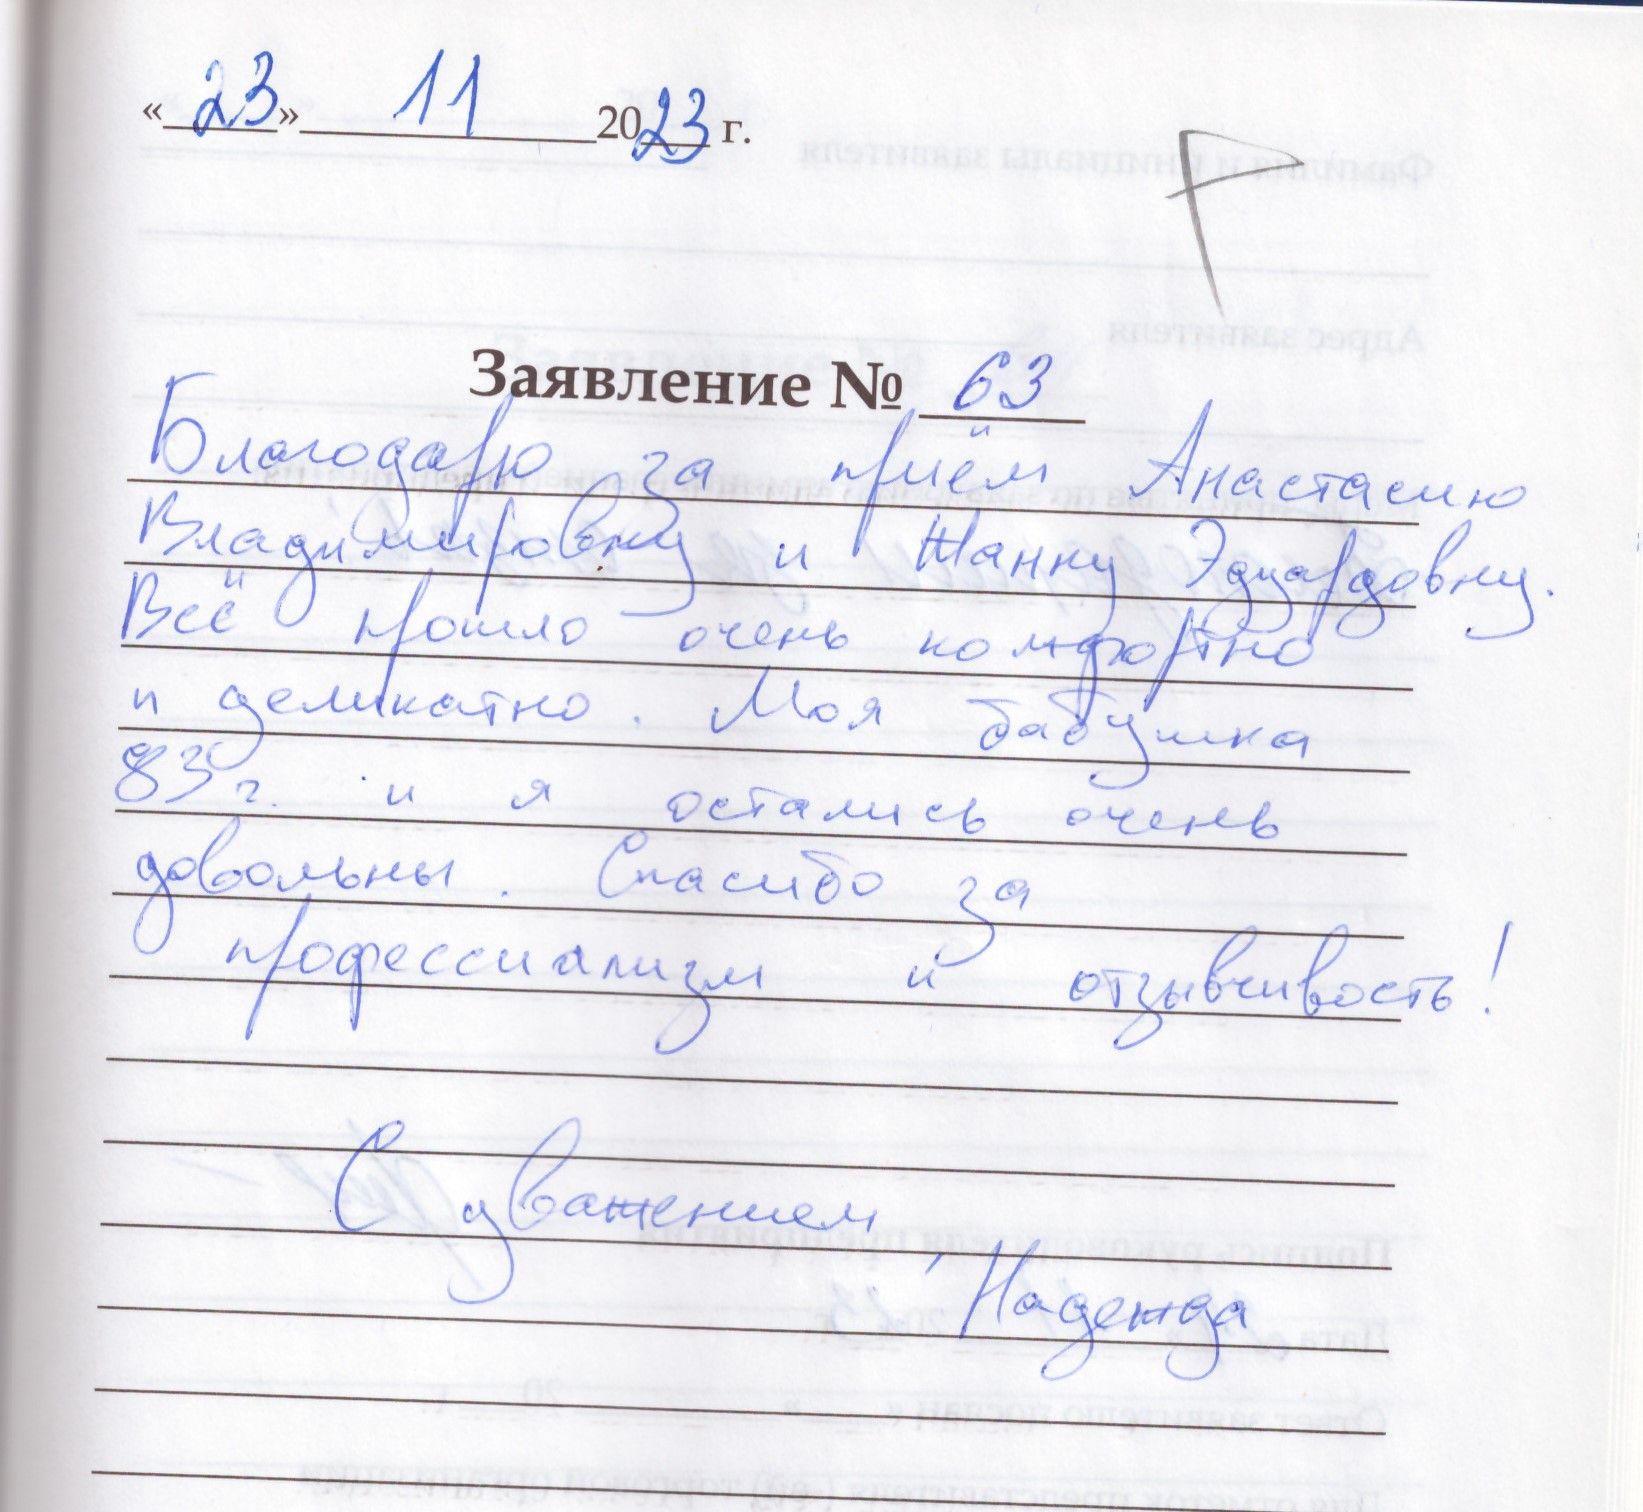 «23» 11 2023 г.
Заявление № 63
Благодарю за приём Анастасию
Владимировну и Жанну Эдуардовну.
Всё прошло очень комфортно
и деликатно. Моя бабушка
83 г. и я остались очень
довольны. Спасибо за
профессиализм и отзывчивость!
С уважением,
Надежда